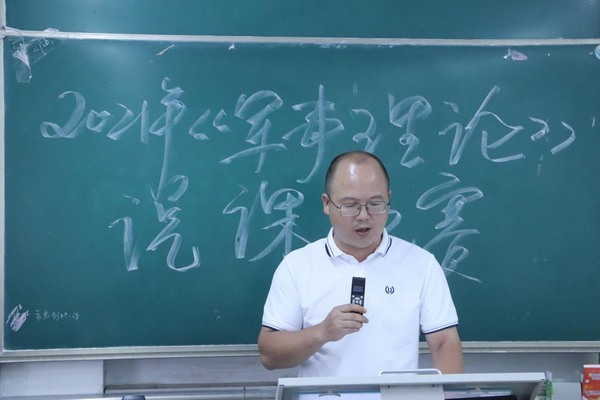 2021年《军事理论》
说课 赛